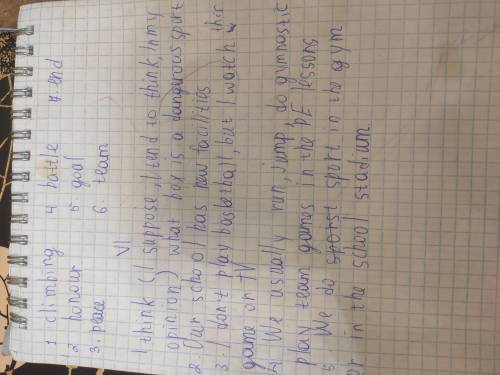 1 climbing 4 battle 7. end
2 honour 5 goal
3. peace 6. team
VI
1 think (I suppose, I tend to think, In my
opinion) what box is a dangerous sport
2 Our school has new facilities
3. I don't play basketball, but I watch thir
game or TV
4 We usually run, jump, do gymnastic
play team games in the PE lessons
5. We do sporst sport in the gym
or in the school stadium